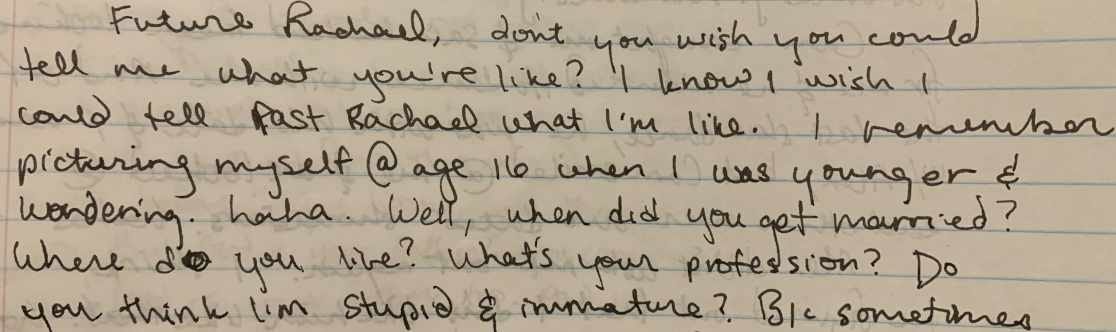 Future Rachael, don't you wish you could
tell me what you're like? I know I wish I
could tell Past Rachael what I'm like. I remember
picturing myself @ age 16 when I was younger &
wondering. haha. Well, when did you get married?
Where do you live? What's your profession? Do
you think I'm stupid & immature? B/c sometimes